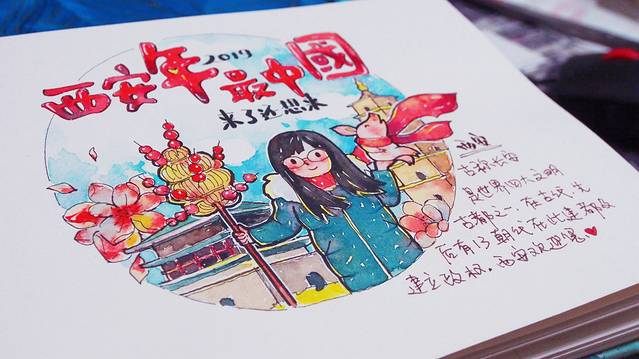 西安年
2019
最中國
来了还想来
西安
古称长安
是世界四大文明
古都之一,在古代先
后有13朝代在此建都及
建立政权,西安欢迎您